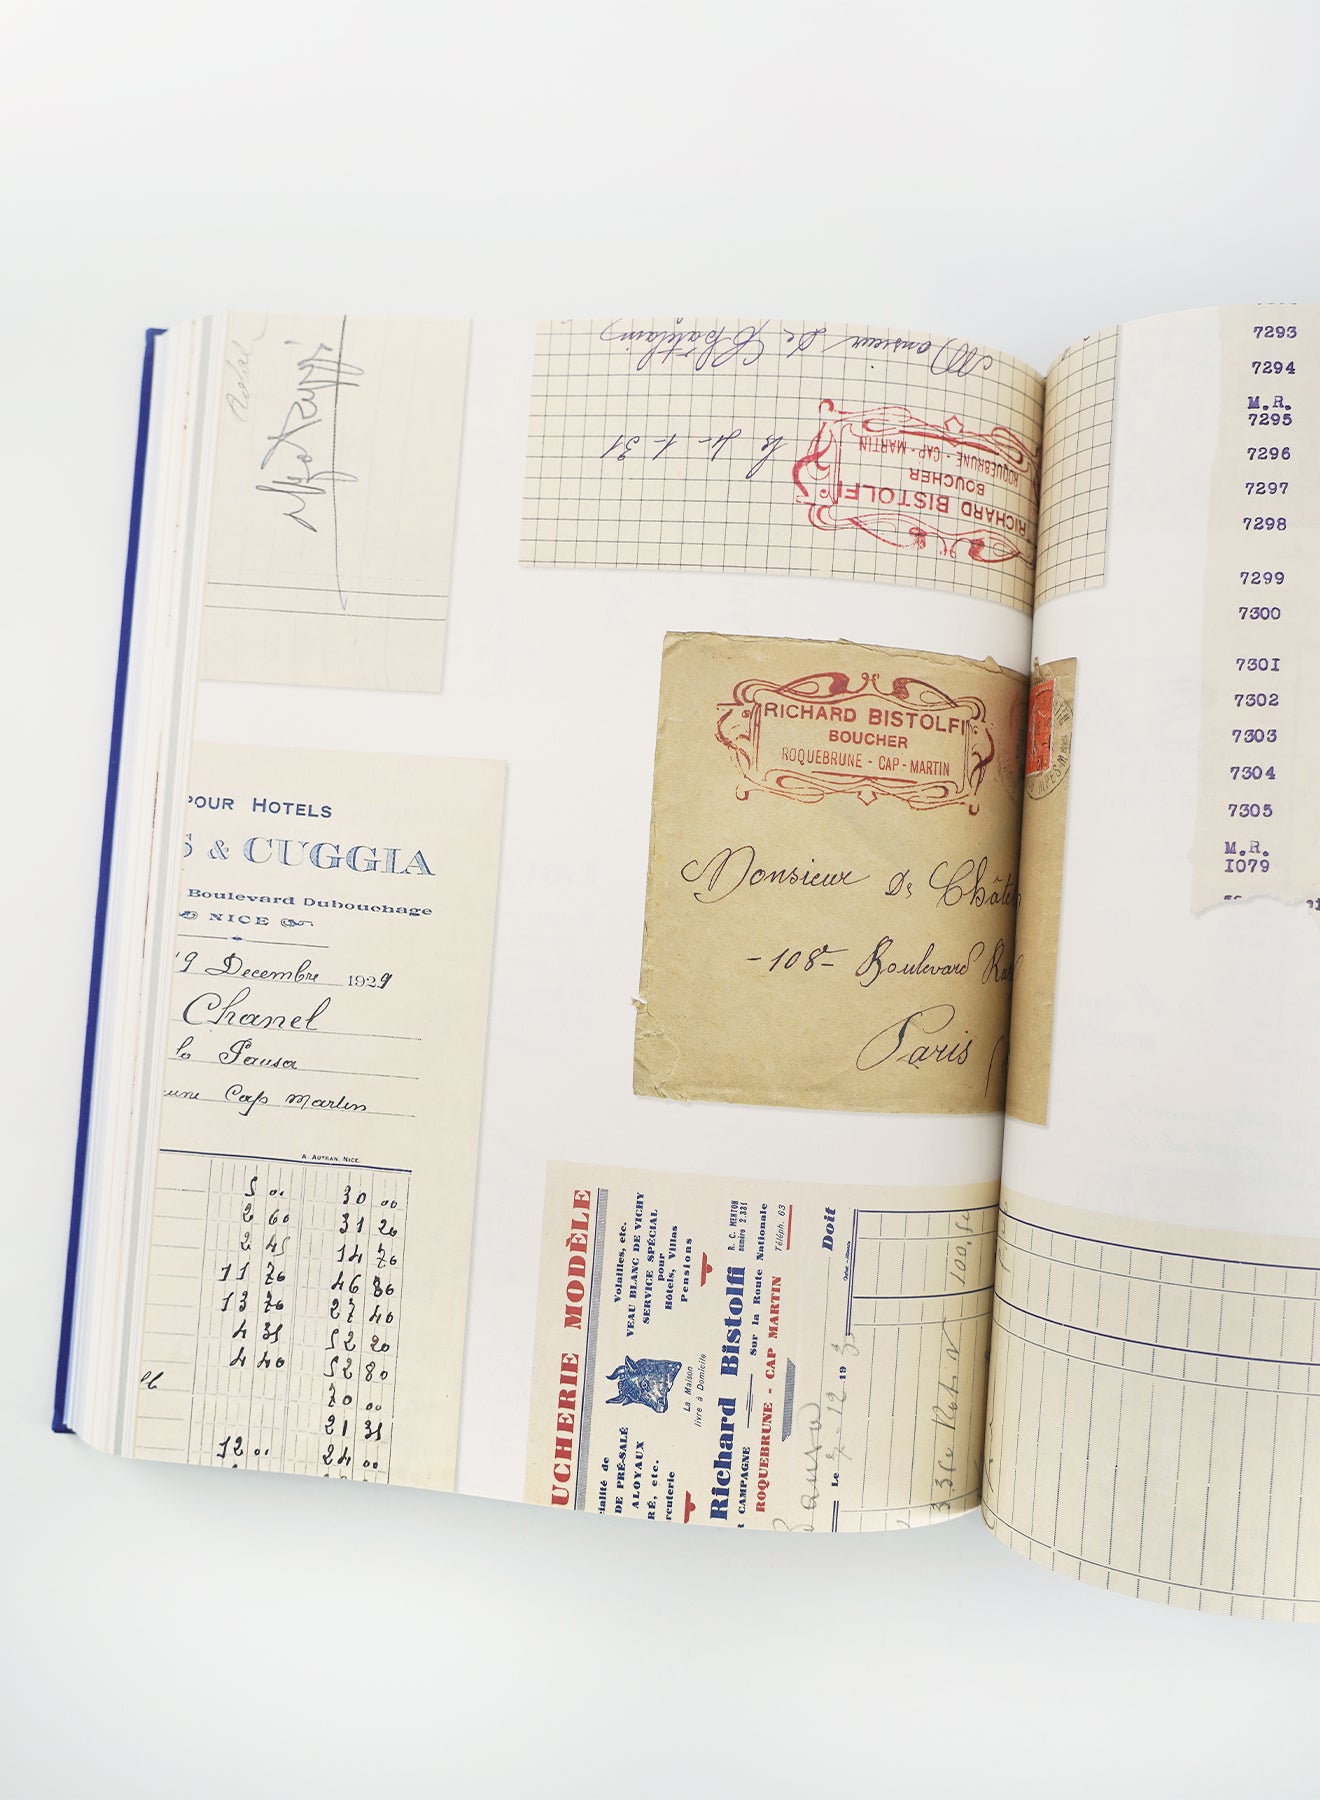 Monsieur De Chatelain
le 4-1-31
RICHARD BISTOLFI
BOUCHER
ROQUEBRUNE - CAP - MARTIN
RICHARD BISTOLFI
BOUCHER
ROQUEBRUNE - CAP - MARTIN
Monsieur De Châte
-108- Boulevard Ra
Paris
POUR HOTELS
S & CUGGIA
Boulevard Dubouchage
NICE
19 Decembre 1929
Chanel
la Pausa
une Cap Martin
A. AUTRAN, NICE.
5 00 30 00
2 60 31 20
2 45 14 70
11 70 46 80
13 70 27 40
4 35 52 20
4 40 52 80
70 00
21 35
12 00 24 00
UCHERIE MODÈLE
cialité de
DE PRÉ-SALÉ
ALOYAUX
RÉ, etc.
rcuterie
Volailles, etc.
VEAU BLANC DE VICHY
SERVICE SPÉCIAL
pour
Hôtels, Villas
Pensions
La Maison
livre à Domicile
R. C. MENTON
Numéro 2.331
Richard Bistolfi
R CAMPAGNE
Sur la Route Nationale
ROQUEBRUNE - CAP MARTIN
Téléph. 63
Doit
Le 7-12 193
7293
7294
M.R.
7295
7296
7297
7298
7299
7300
7301
7302
7303
7304
7305
M.R.
1079